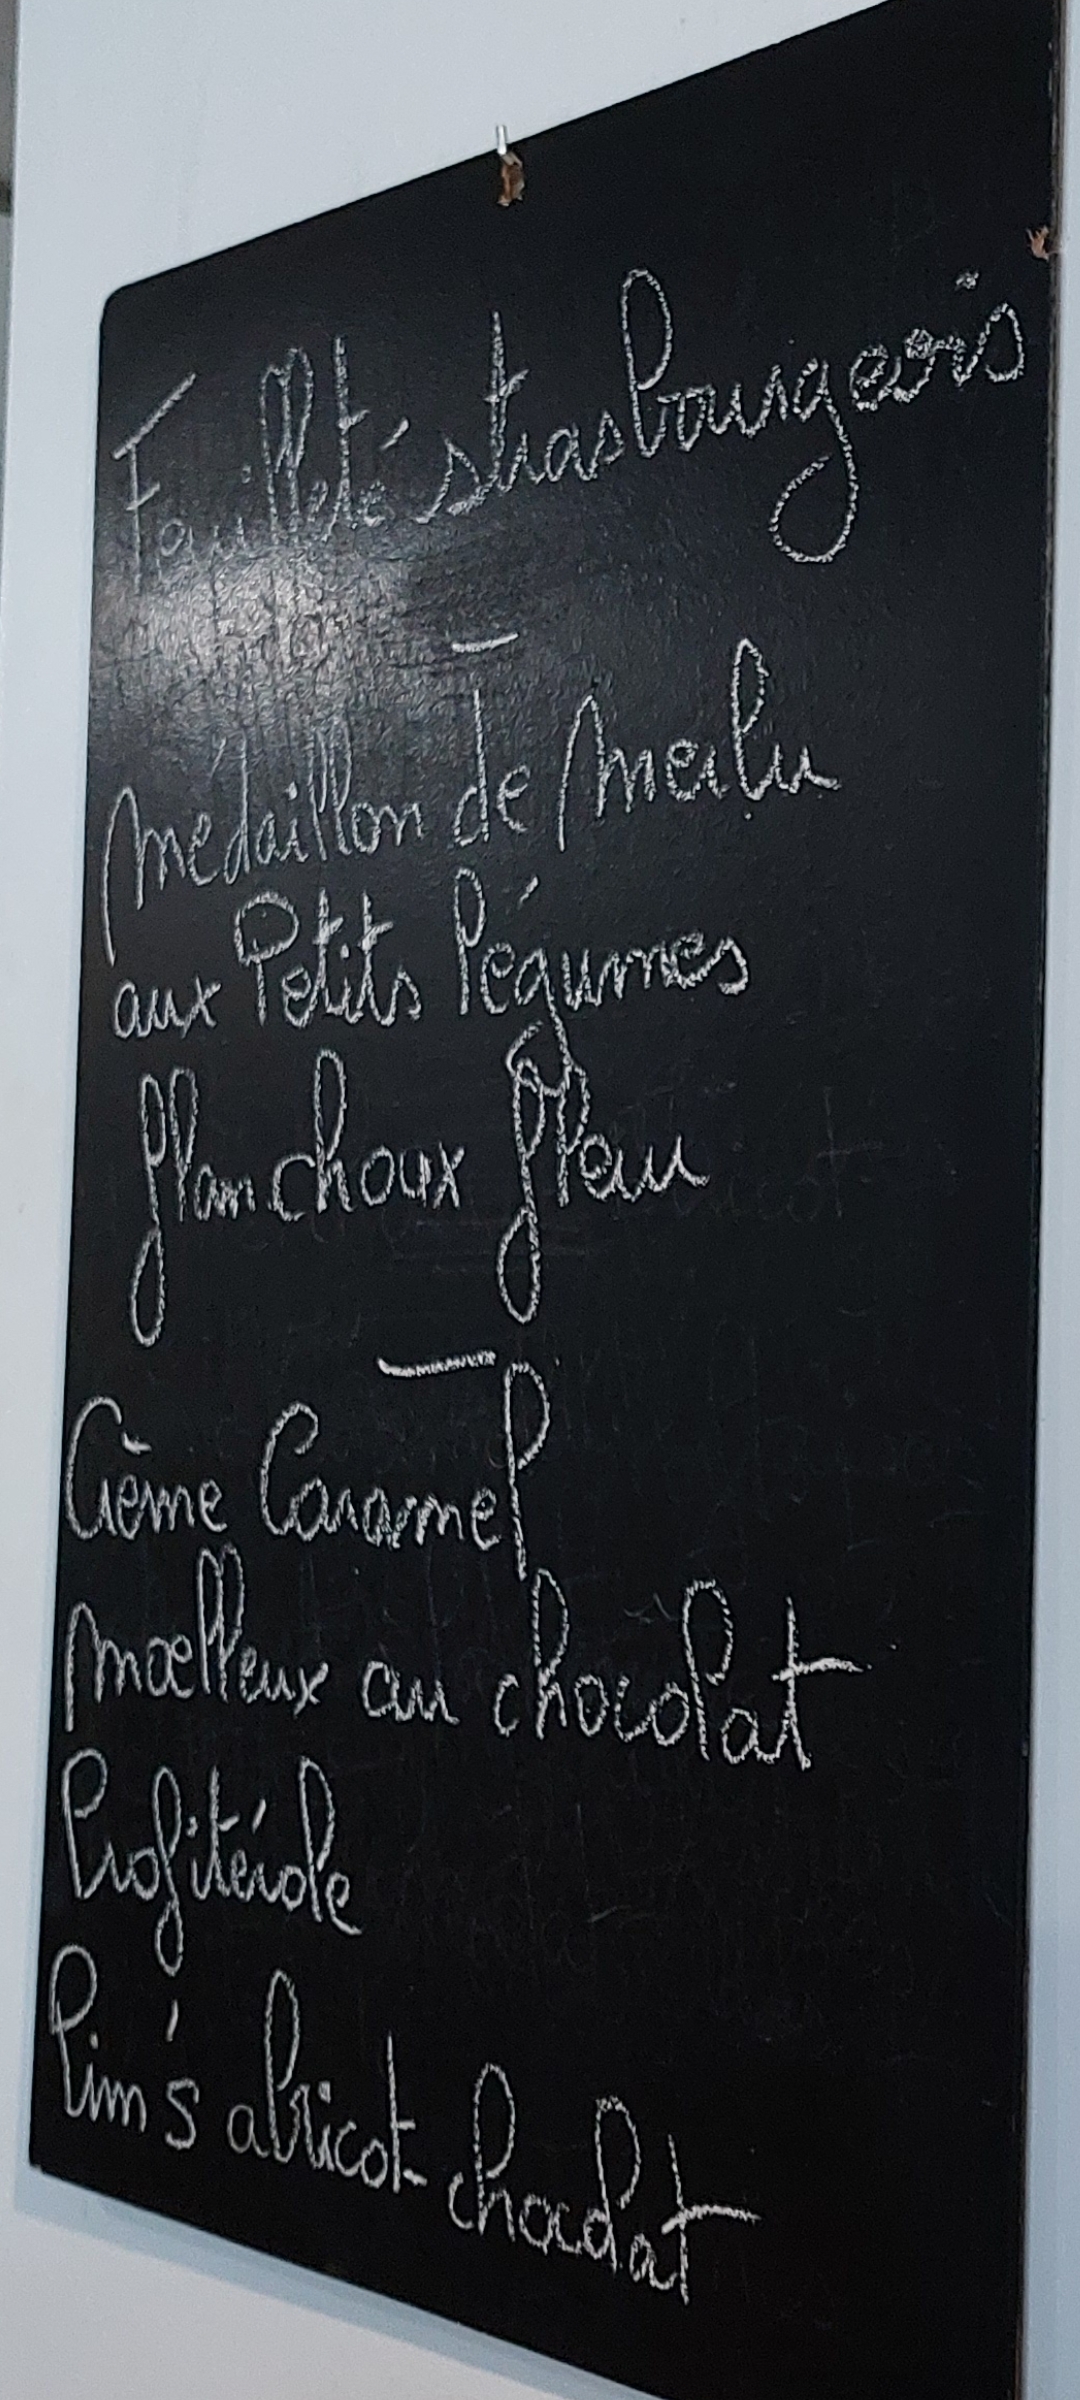 Feuilleté strasbourgeois
Médaillon de Merlu
aux Petits légumes
flan choux fleur
Crème Caramel
Moelleux au chocolat
Profitérole
Pim's abricot-chocolat